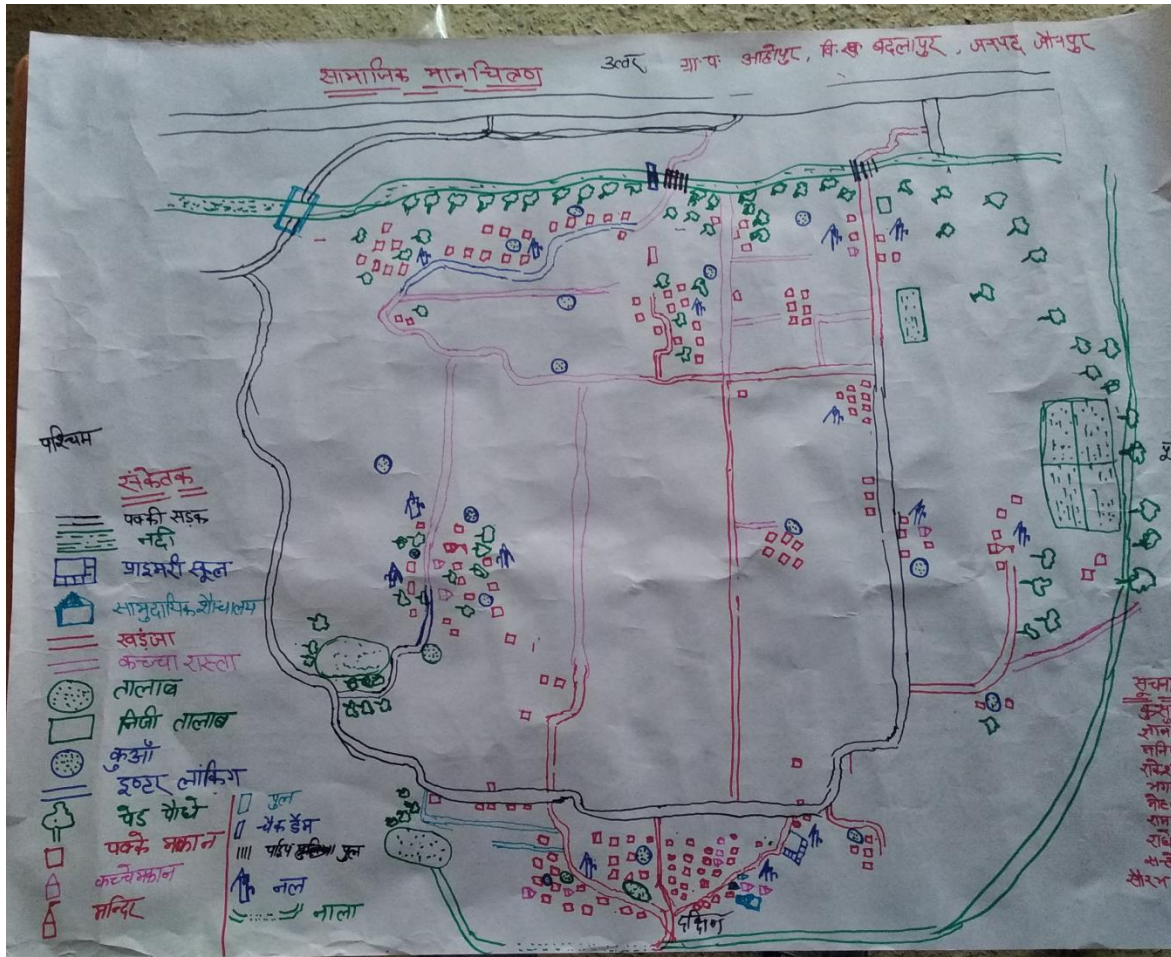 सामाजिक मानचित्रण
उत्तर
ग्रा.पं. आहोपुर, वि.ख. बदलापुर, जनपद जौनपुर
पश्चिम
पू
संकेतक
पक्की सड़क
नदी
प्राइमरी स्कूल
सामुदायिक शौचालय
खड़ंजा
कच्चा रास्ता
तालाब
निजी तालाब
कुआँ
इण्टर लॉकिंग
पेड़ पौधे
पक्के मकान
कच्चे मकान
मन्दिर
पुल
चैक डैम
पाईप पुल
नल
नाला
दक्षिण